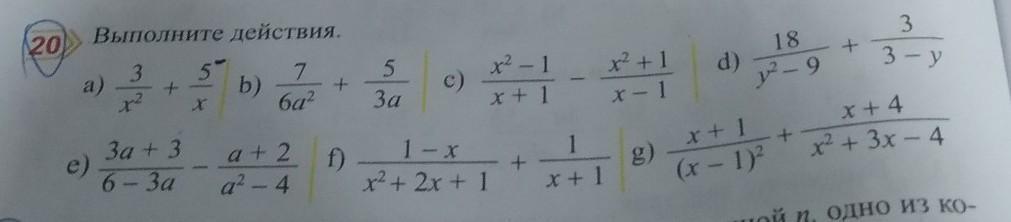 20 Выполните действия.
a) 3/x² + 5/x b) 7/6a² + 5/3a c) x² – 1/x + 1 – x² + 1/x – 1 d) 18/y² – 9 + 3/3 – y
e) 3a + 3/6 – 3a – a + 2/a² – 4 f) 1 – x/x² + 2x + 1 + 1/x + 1 g) x + 1/(x – 1)² + x + 4/x² + 3x – 4
n, одно из ко-